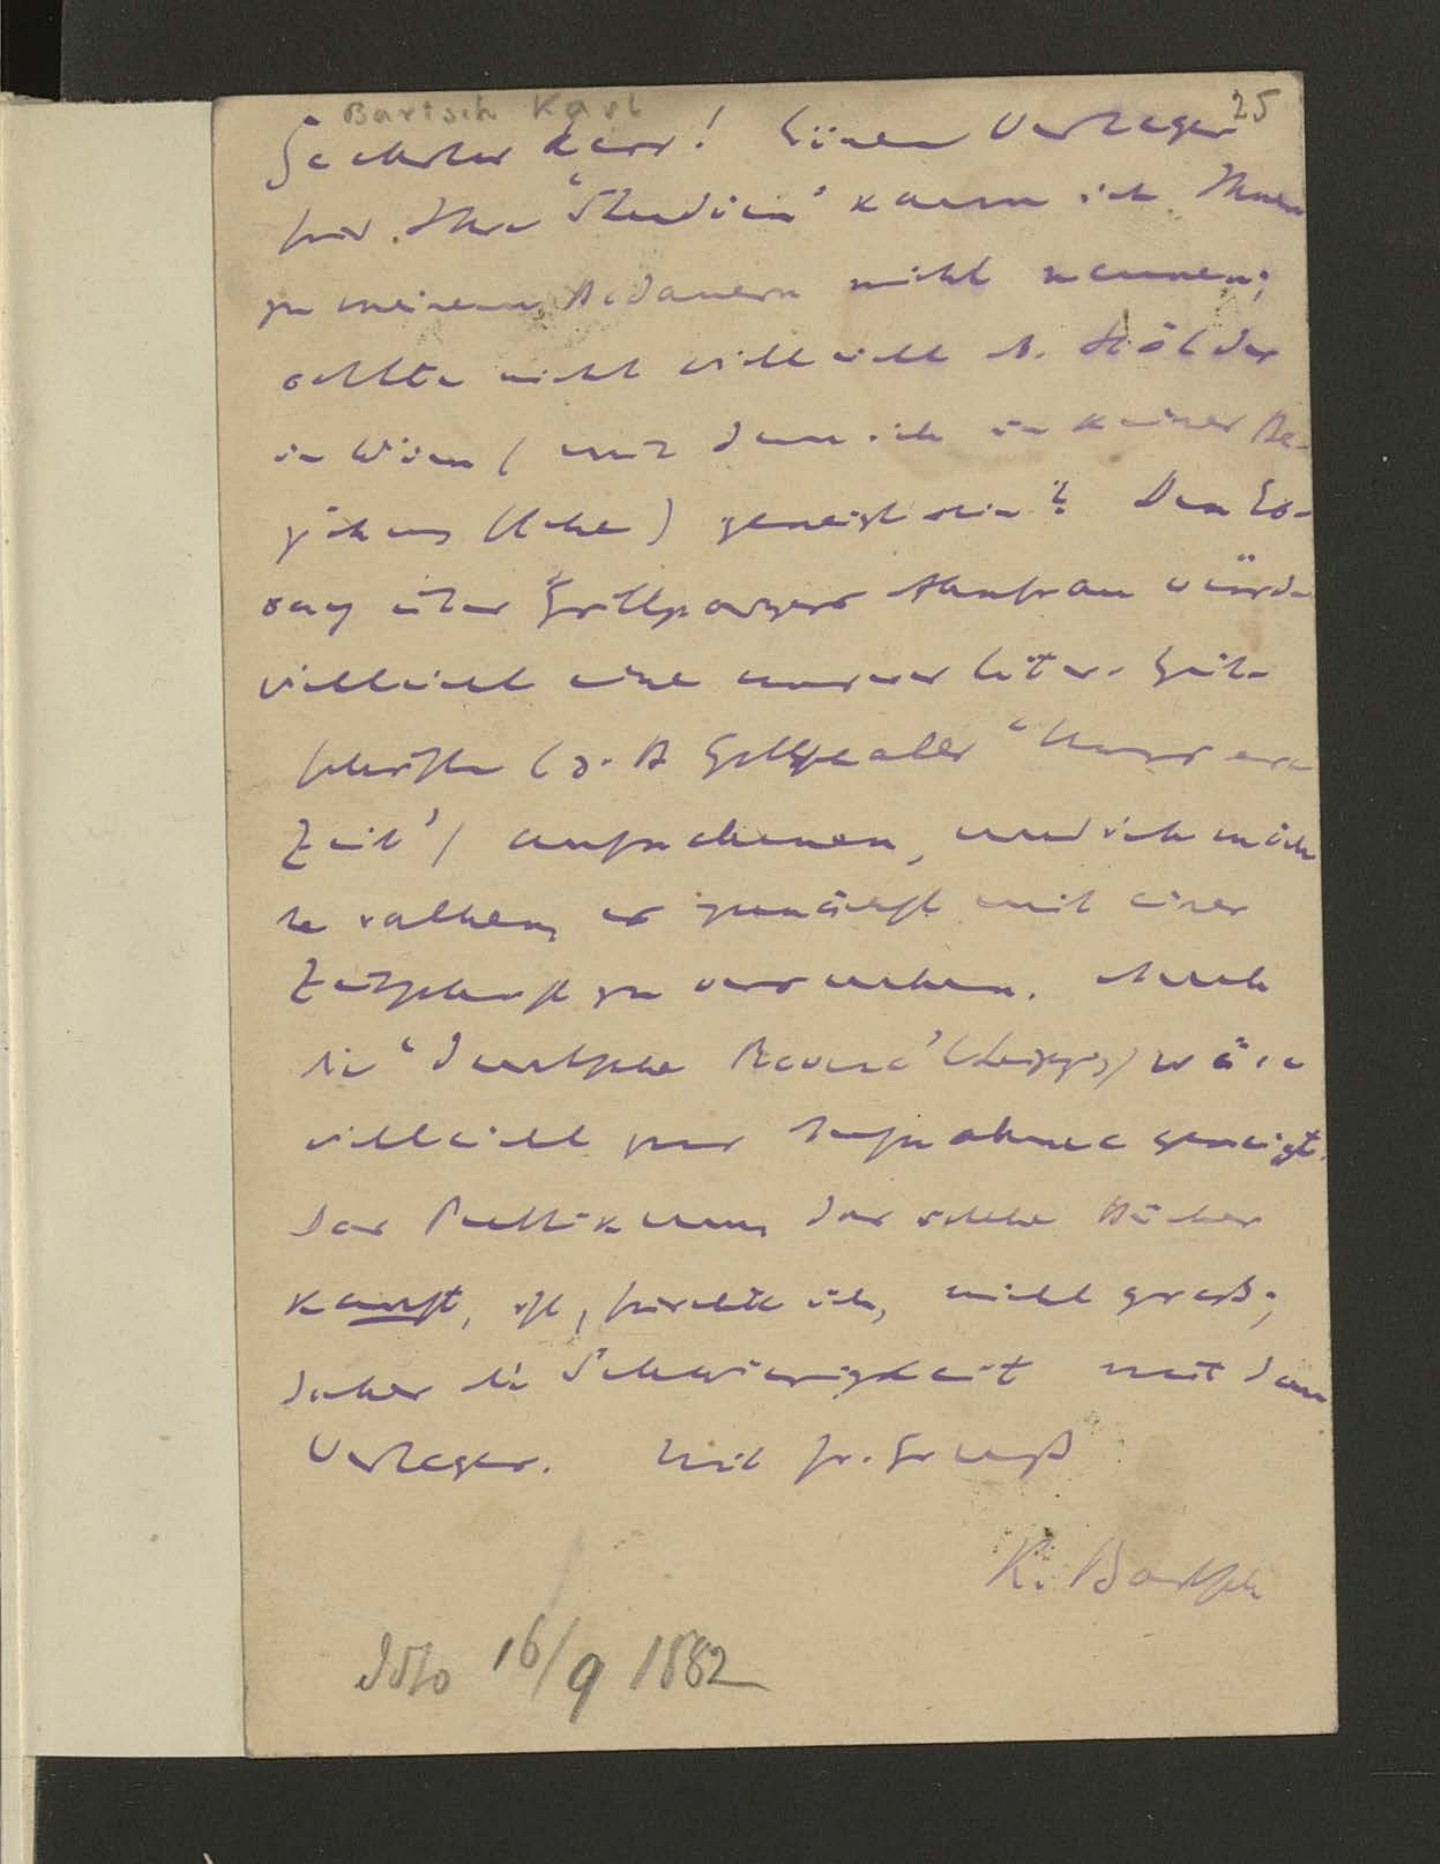 Bartsch Karl
25
Geehrter Herr! Einen Verleger
für Ihre 'Studien' kann ich Ihnen
zu meinem Bedauern nicht nennen;
sollte nicht vielleicht A. Hölder
in Wien (mit dem ich in keiner Be-
ziehung stehe) geneigt sein? Den Es-
say über Grillparzers Ahnfrau würde
vielleicht eine unserer liter. Zeit-
schriften (z. B Gottschalls 'Unsere
Zeit') aufnehmen, und ich möch
te rathen, es zunächst mit einer
Zeitschrift zu versuchen. Auch
die 'Deutsche Revue' (Leipzig) wäre
vielleicht zur Aufnahme geneigt.
Das Publikum, das solche Bücher
kauft, ist, fürchte ich, nicht groß;
daher die Schwierigkeit mit dem
Verleger. Mit fr. Gruß
K. Bartsch
16/9 1882